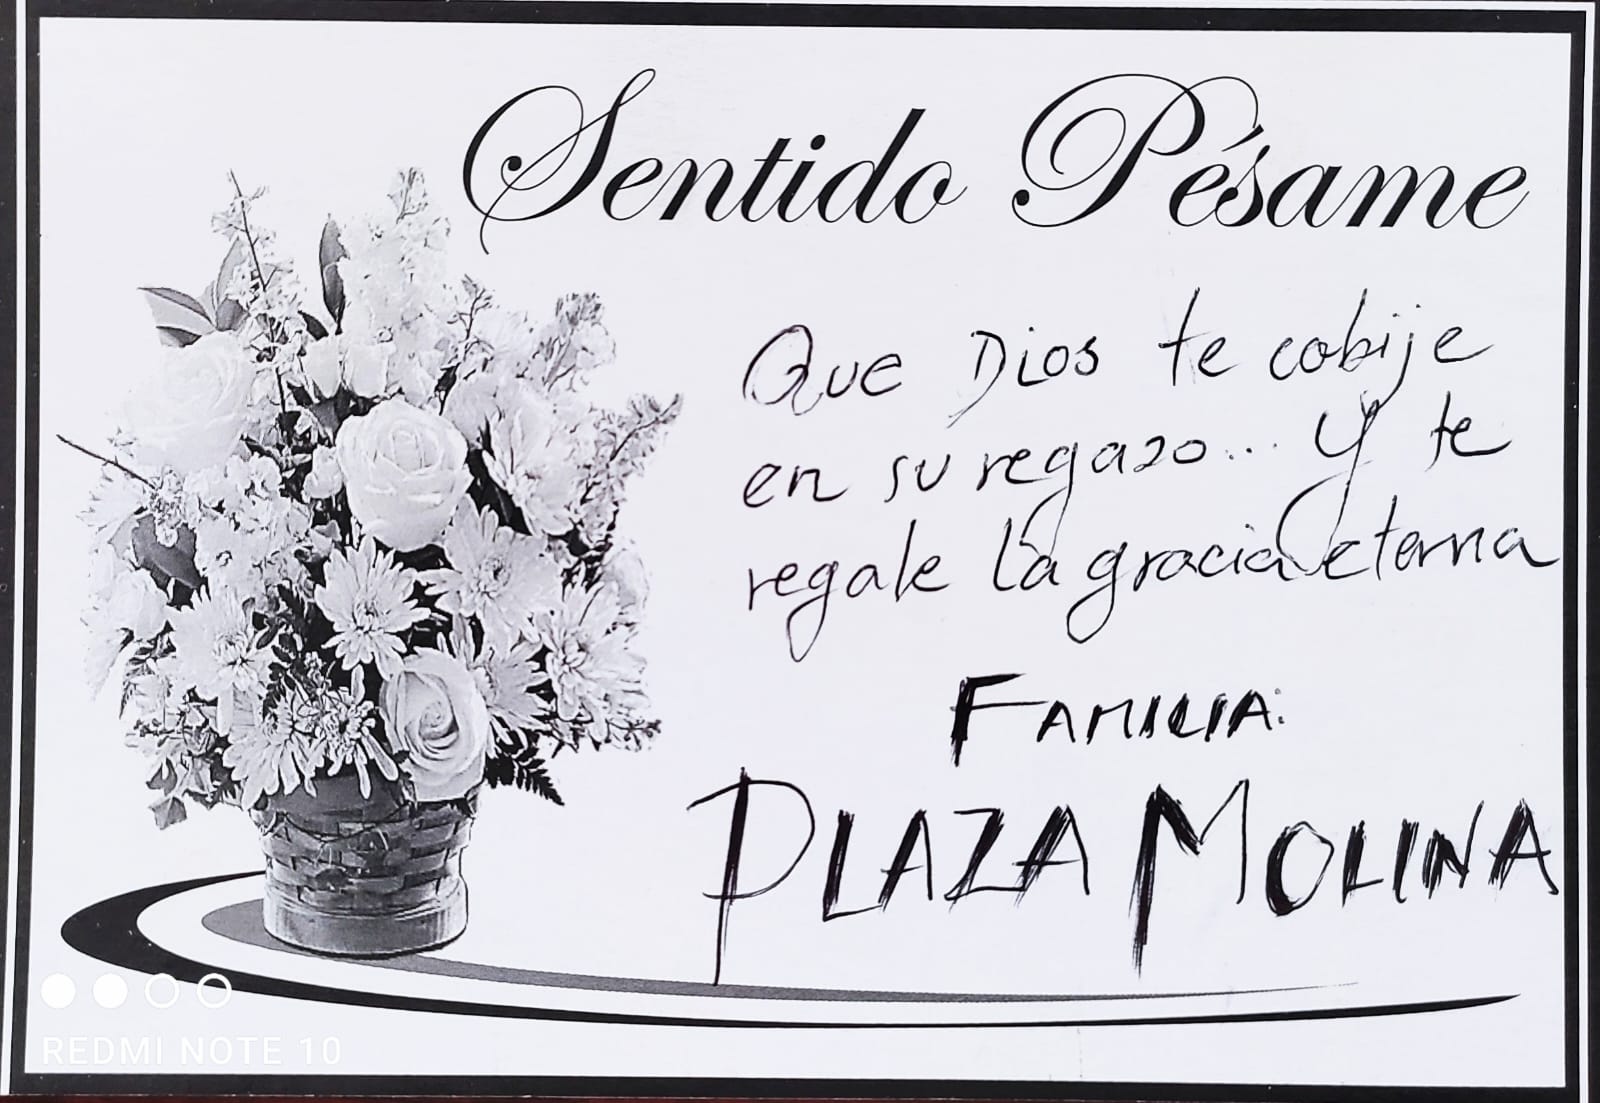 Sentido Pésame
Que Dios te cobije
en su regazo... Y te
regale la gracia eterna
FAMILIA:
PLAZA MOLINA
REDMI NOTE 10